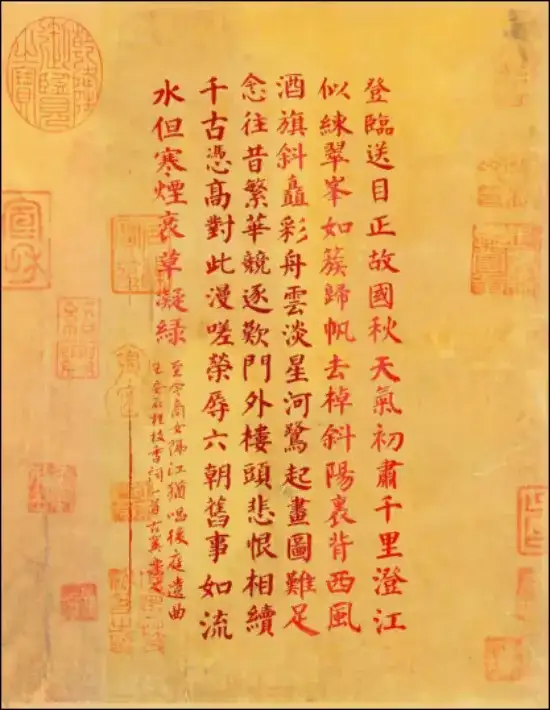 登臨送目正故國秋天氣初肅千里澄江
似練翠峯如簇歸帆去棹斜陽裏背西風
酒旗斜矗彩舟雲淡星河鷺起畫圖難足
念往昔繁華競逐歎門外樓頭悲恨相續
千古憑高對此漫嗟榮辱六朝舊事如流
水但寒煙衰草凝綠
至今商女隔江猶唱後庭遺曲
王安石桂枝香詞一首古冀
乾隆御覽之寶